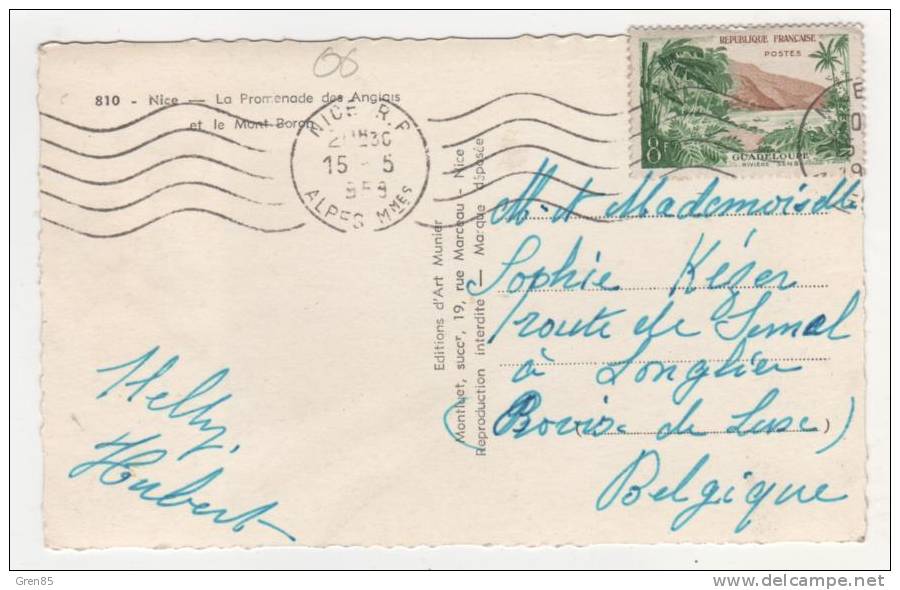 06
810 - Nice — La Promenade des Anglais
et le Mont Boron
NICE R.P
15 - 5
ALPES Mmes
REPUBLIQUE FRANÇAISE
POSTES
8F
GUADELOUPE
RIVIÈRE SENS
Editions d'Art Munier
Montluet, succr, 19, rue Marceau - Nice
Reproduction interdite — Marque déposée
Mademoiselle
Sophie
route de
à Longlier
de Luxe)
Belgique
Nelly,
Hubert
Gren85
delcampe.net